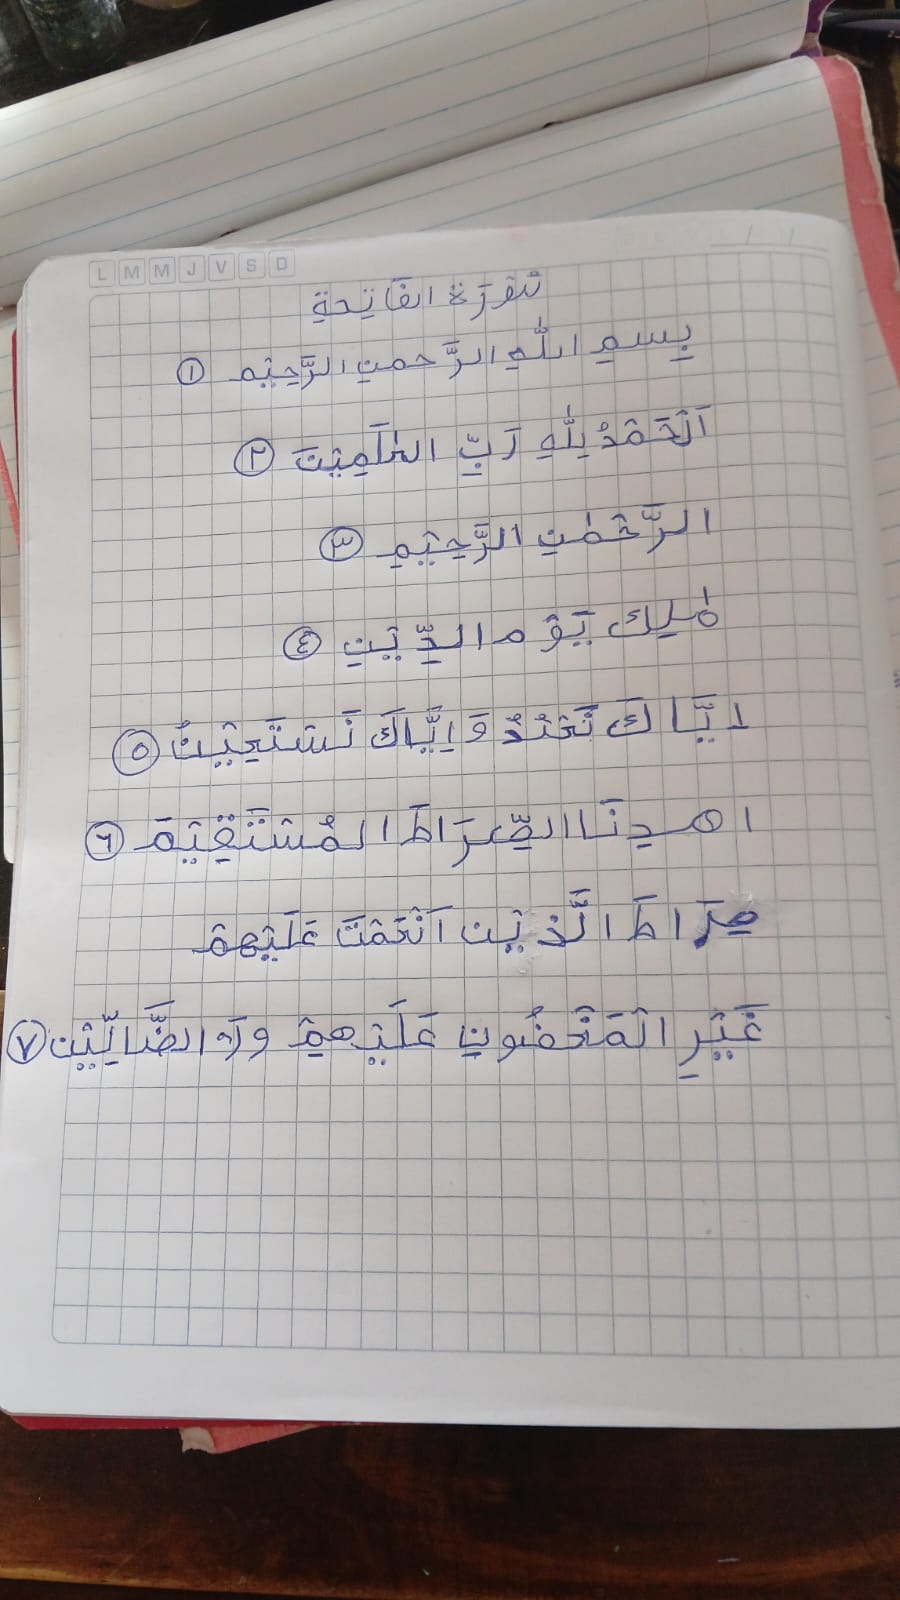 L M M J V S D
سُورَة الفَاتِحَةِ
بِسمِ اللّٰهِ الرَّحمنِ الرَّحِيْمِ ١
اَلْحَمْدُ لِلّٰهِ رَبِّ العٰلَمِيْنَ ٢
الرَّحْمٰنِ الرَّحِيْمِ ٣
مٰلِكِ يَوْمِ الدِّيْنِ ٤
ايَّاكَ نَعْبُدُ وَ اِيَّاكَ نَسْتَعِيْنُ ٥
اهدِنَا الصِّرَاطَ المُسْتَقِيْمَ ٦
صِرَاطَ الَّذِيْن اَنْعَمْتَ عَلَيْهِمْ
غَيْرِ الْمَغْضُوبِ عَلَيْهِمْ وَلَا الضَّالِّيْن ٧